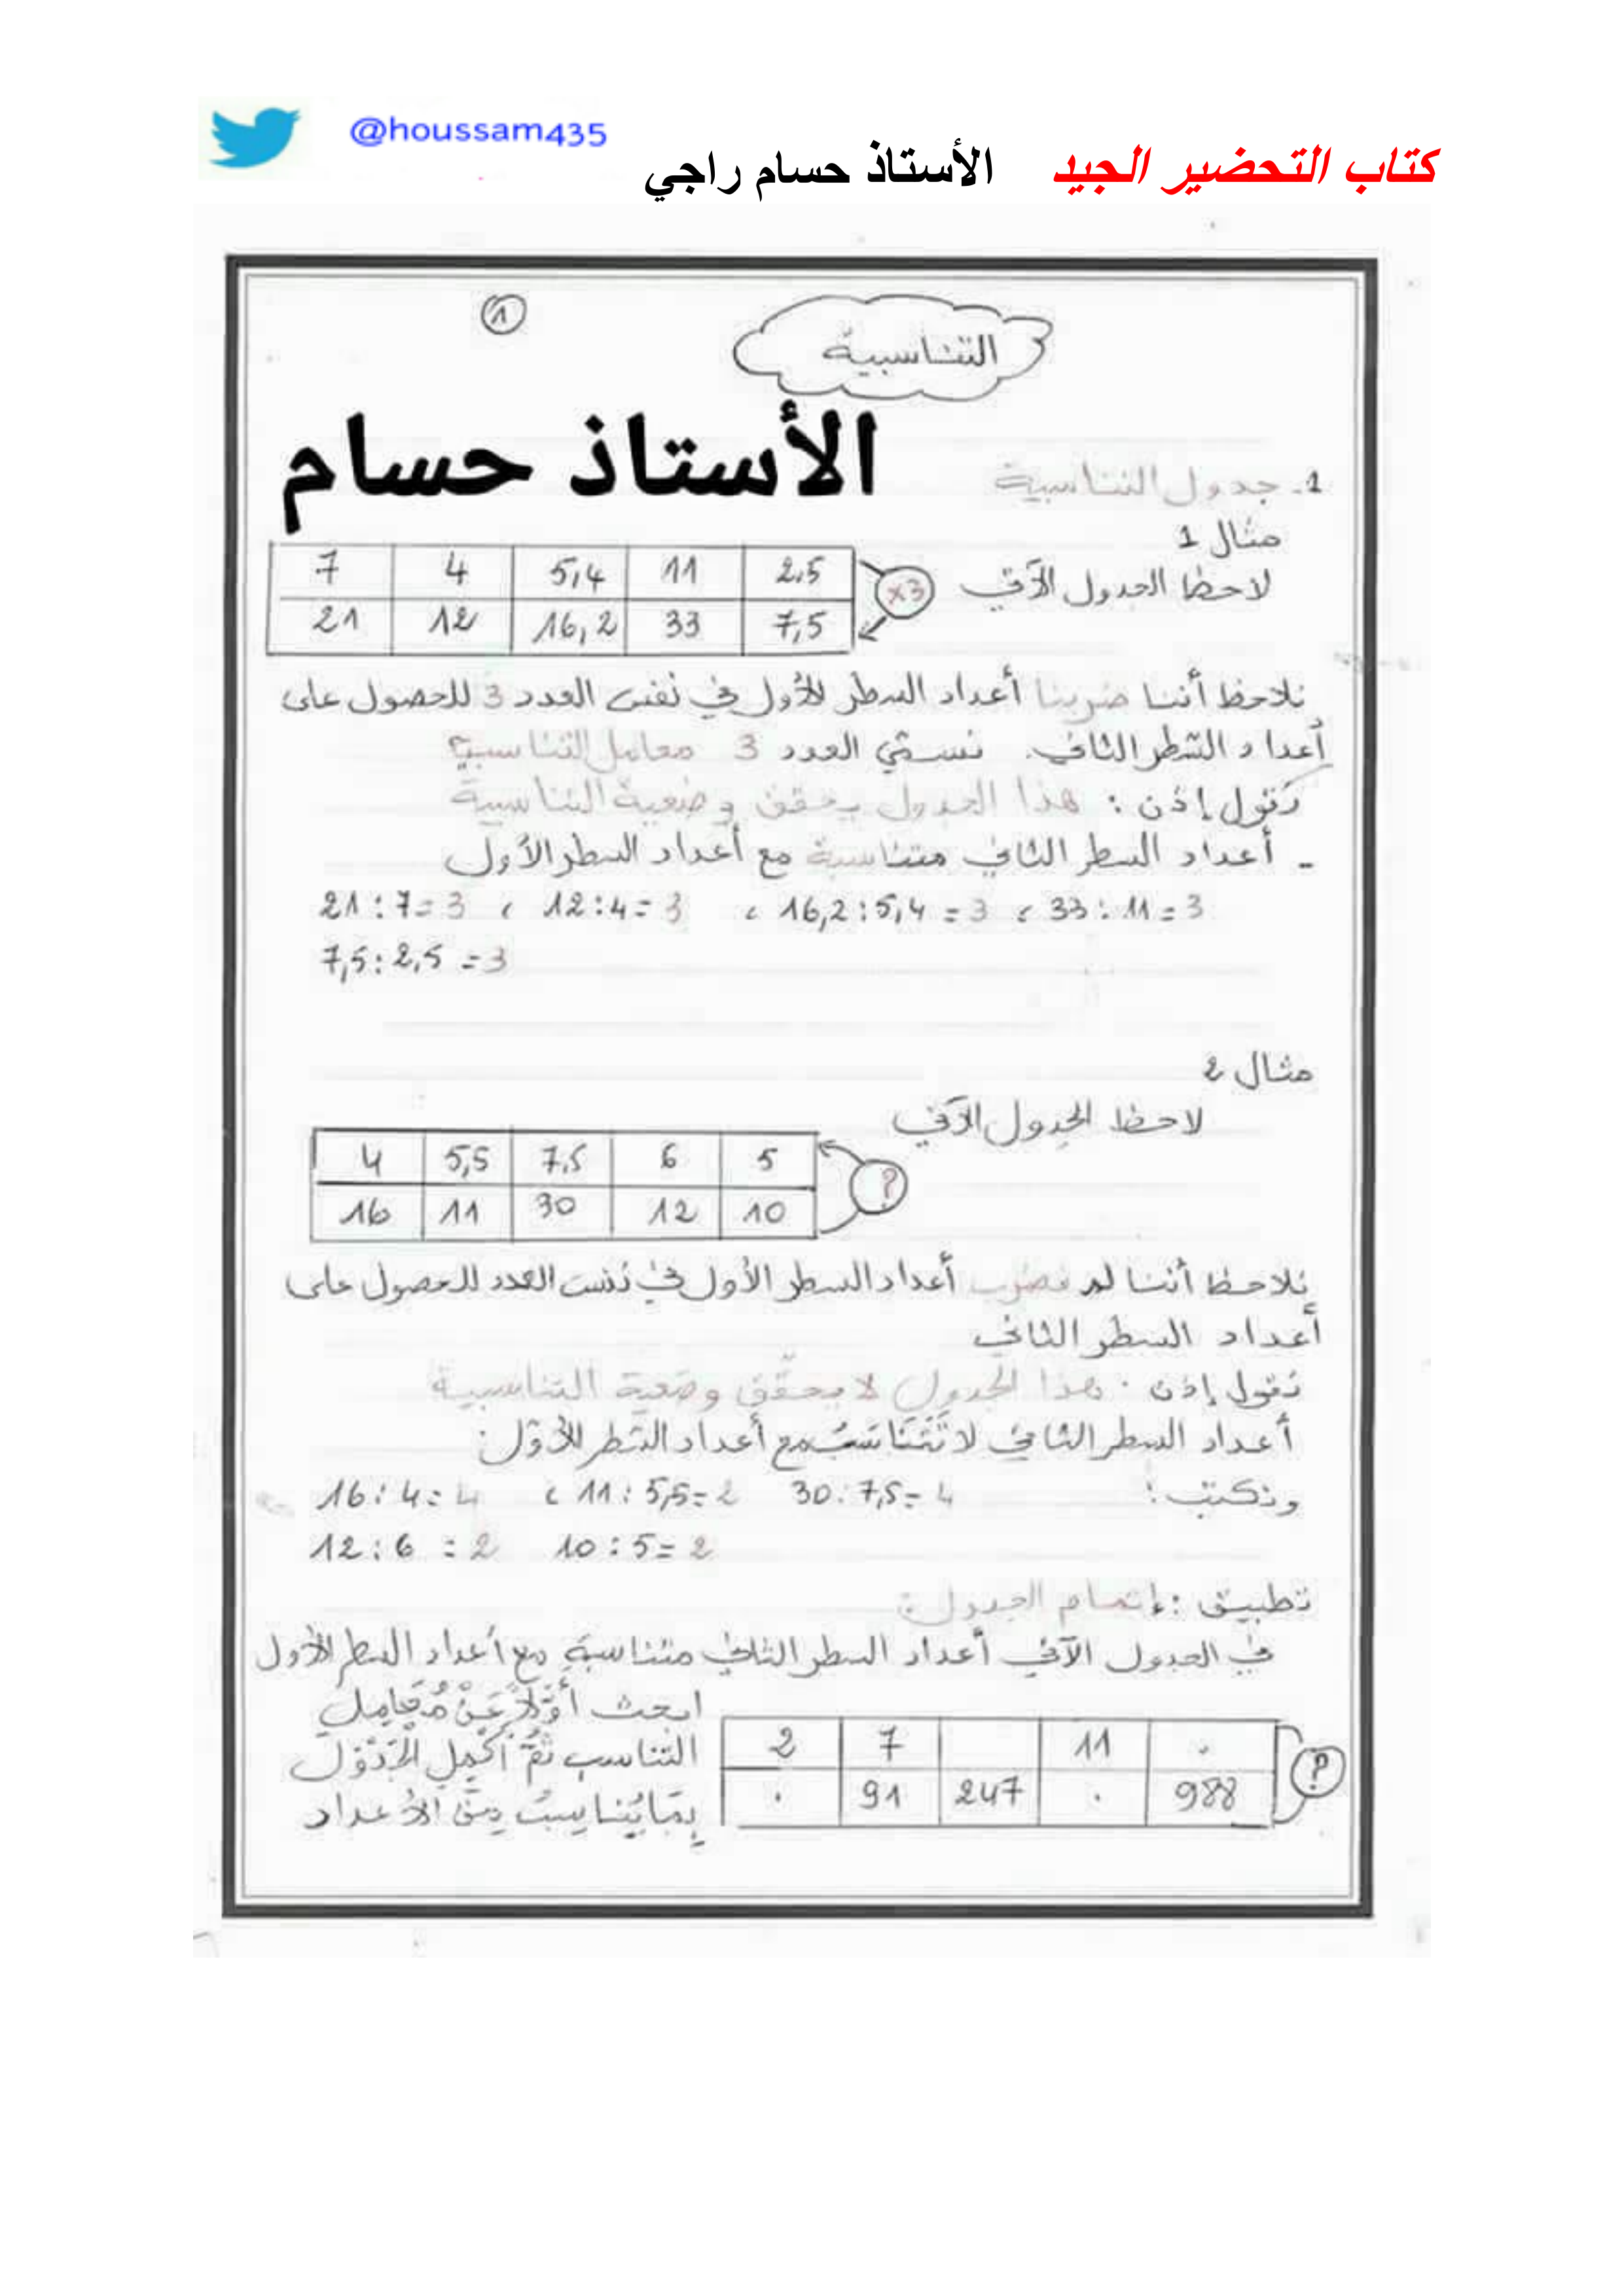 @houssam435
كتاب التحضير الجيد الأستاذ حسام راجي
1
التناسبية
الأستاذ حسام
1. جدول التناسبية
مثال 1
لاحظ الجدول الآتي
7 4 5,4 11 2,5
×3
21 12 16,2 33 7,5
نلاحظ أننا ضربنا أعداد السطر الأول في نفس العدد 3 للحصول على
أعداد السطر الثاني. نسمّي العدد 3 معامل التناسبية
نقول إذن : هذا الجدول يحقق وضعية التناسبية
- أعداد السطر الثاني متناسبة مع أعداد السطر الأول
21 : 7 = 3 ، 12 : 4 = 3 ، 16,2 : 5,4 = 3 ، 33 : 11 = 3
7,5 : 2,5 = 3
مثال 2
لاحظ الجدول الآتي
4 5,5 7,5 6 5
?
16 11 30 12 10
نلاحظ أننا لم نضرب أعداد السطر الأول في نفس العدد للحصول على
أعداد السطر الثاني
نقول إذن : هذا الجدول لا يحقّق وضعية التناسبية
أعداد السطر الثاني لا تَتَنَاسَبُ مع أعداد السّطر الأوّل.
ونكتب :
16 : 4 = 4 ، 11 : 5,5 = 2 30 : 7,5 = 4
12 : 6 = 2 10 : 5 = 2
تطبيق : إتمام الجدول :
في الجدول الآتي أعداد السطر الثاني متناسبة مع أعداد السطر الأول
ابحث أوّلاً عَنْ مُعَامِلِ
التناسب ثُمَّ أَكْمِلِ الْجَدْوَلَ
بِمَا يُنَاسِبُ مِنَ الأعداد
2 7 11 .
?
. 91 247 . 988